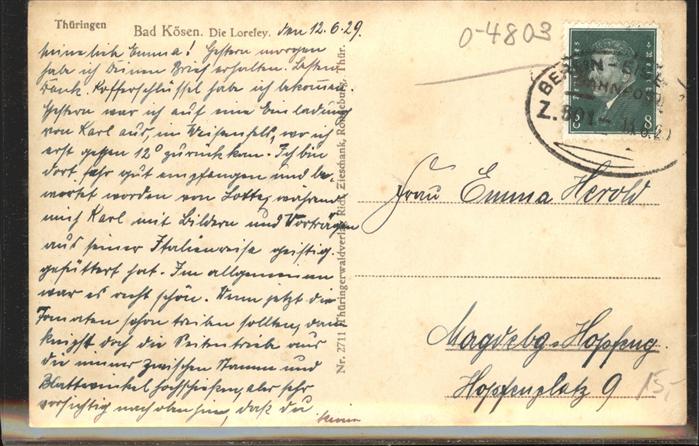 Thüringen
Bad Kösen. Die Loreley.
den 12.6.29.
Meine liebe Emma! Gestern morgen
habe ich Deinen Brief erhalten. Besten
Dank. Kofferschlüssel habe ich bekommen.
Gestern war ich auf eine Einladung
von Karl aus, in Weißenfels, wo ich
erst gegen 12° zurück kam. Ich bin
dort sehr gut empfangen und be-
wortet worden von Lotte, während
mich Karl mit Bildern und Vorträgen
aus seiner Italienreise geistig
gefüttert hat. Im allgemeinen
war es recht schön. Wenn jetzt die
Tomaten schon treiben sollten, dann
knipst doch die Seitentriebe aus
die immer zwischen Stamm und
Blattwinkel hochschießen, aber sehr
vorsichtig nach oben hin, daß du
Nr. 2711 Thüringerwaldverlag Rich. Zieschank, Ronneburg, Thür.
0-4803
BERLIN
BAHNPOST
Z.
8
8
Frau Emma Herold
Magdebg-Hopfeng.
Hopfenplatz 9
15,-